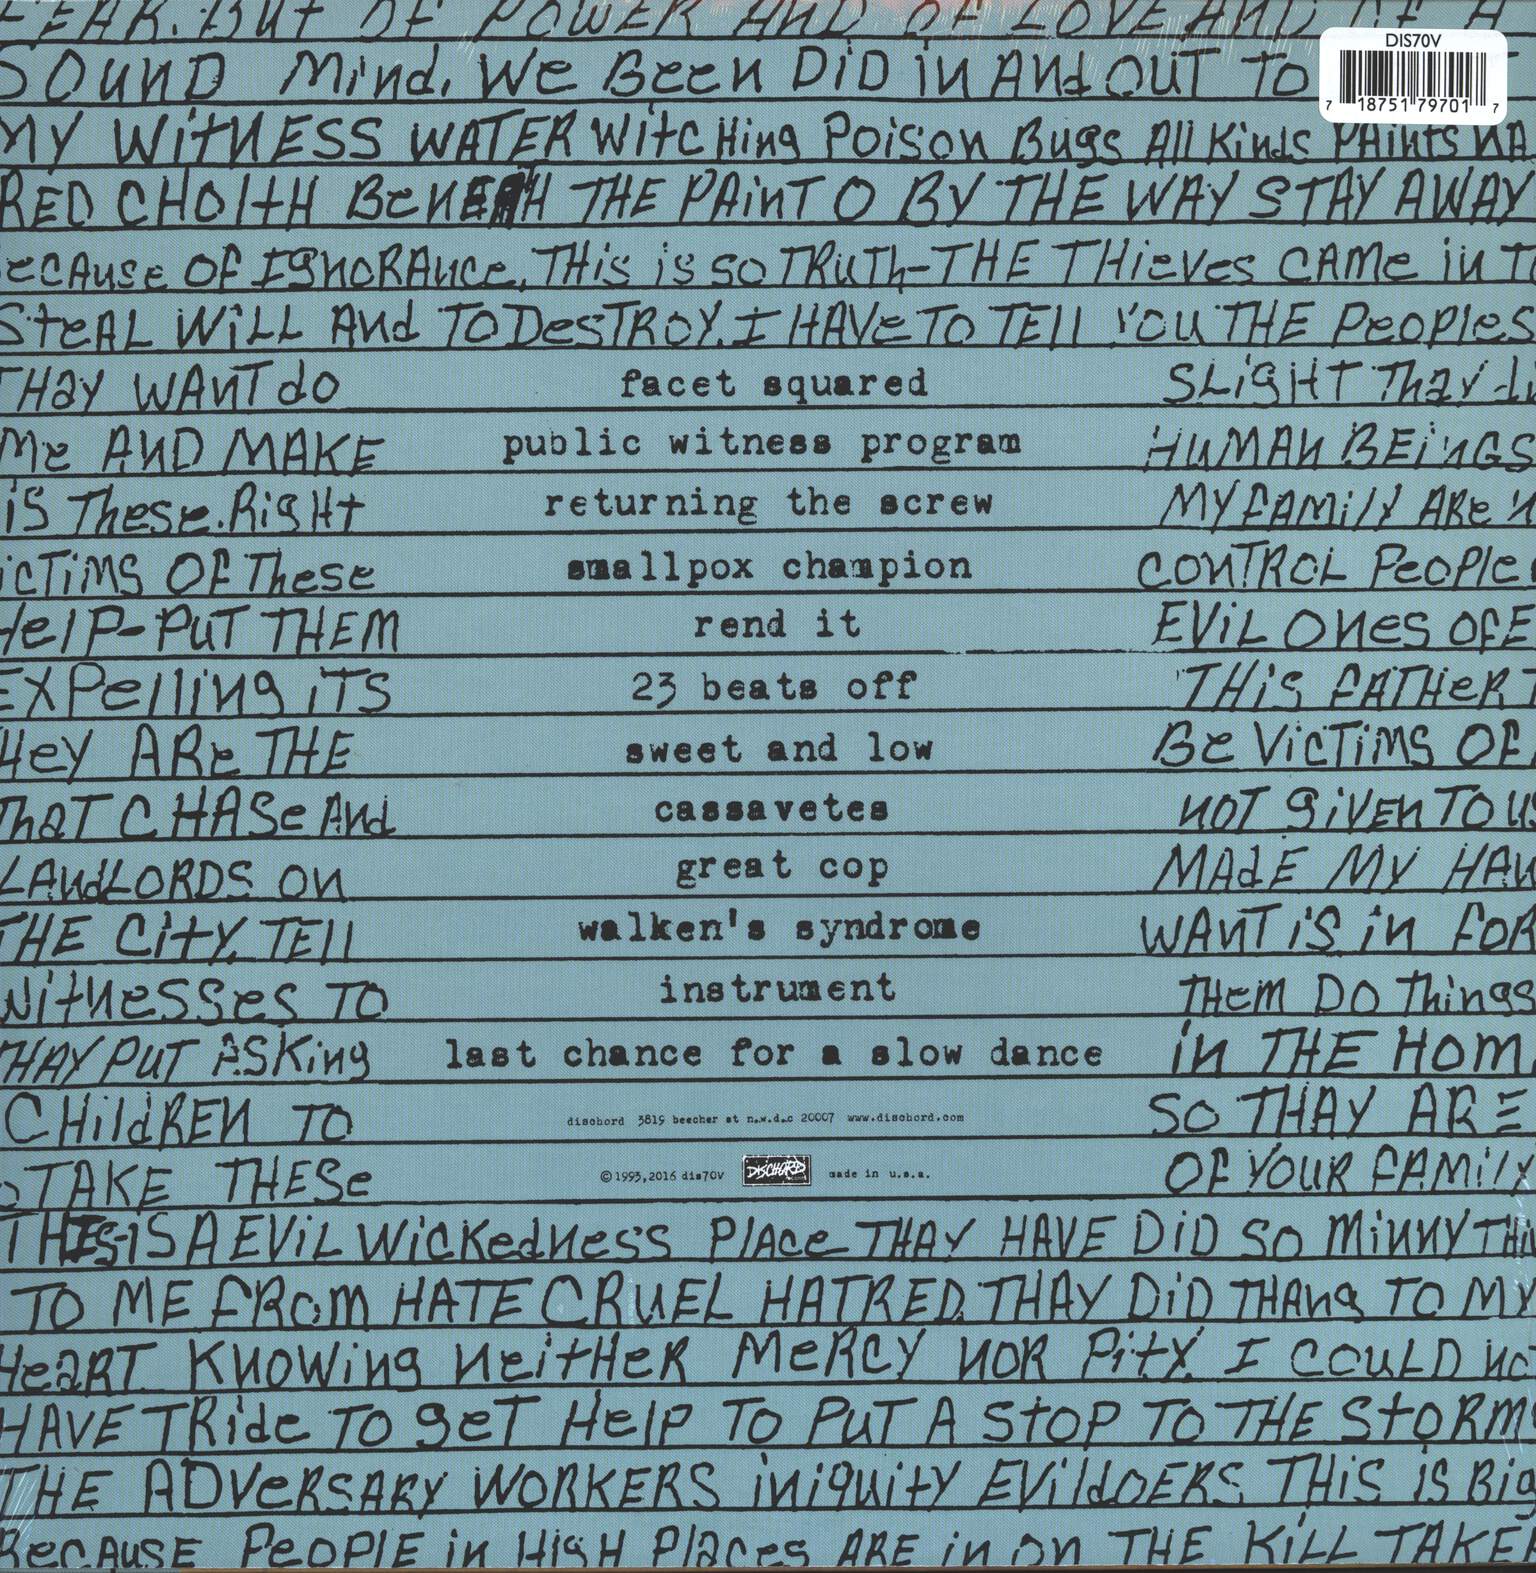 FEAR. BUT OF POWER AND OF LOVE AND OF A
DIS70V
SOUND Mind. We Been DiD iN ANd OUT TO
7 18751 79701 7
MY WitNESS WATER WitCHing POISON Bugs All Kinds PAints NA
RED CHOItH BeNEATH THE PAiNT O BY THE WAY STAY AWAY
ecAuse OF IgNORANce. THis is so TRuTh-THE THieves CAMe iN T
STeAL WiLL ANd TO DesTROY. I HAVe TO TEll YOU THE PeoPles
THay WANT do
facet squared
SLigHT Thay di
Me AND MAKE
public witness program
HUMAN BEiNGS
iS These. RigHt
returning the screw
MY FAMilY ARe
icTiMS OF These
smallpox champion
CONTROL PeoPle
HelP-PUT THEM
rend it
EViL ONes OF E
EXPelliNg iTS
23 beats off
THiS FATHeR
Hey ARe THE
sweet and low
Be VicTiMS OF
ThaT CHASe ANd
cassavetes
NOT giVEN TO US
LANdLORDS ON
great cop
MAdE MY HAN
THE CitY. TEll
walken's syndrome
WANT iS iN FOR
WitNesses TO
instrument
THeM DO Things
THAY PUT ASKing
last chance for a slow dance
iN THE HOM
CHildREN TO
dischord 3819 beecher st n.w.d.c 20007 www.dischord.com
SO THAY ARE
TAKE THESe
©1993,2016 dis70V DISCHORD made in u.s.a.
OF YOUR FAMilY
THIS-iS A EViL WicKedNess PlAce THAY HAVE DiD SO MiNNY THiN
TO ME FROM HATE CRUEL HATRED. THAY DiD THANg TO MY
HeaRT KNOWiNg NeitHeR MeRCY NOR PitY. I COULD NOT
HAVE TRide TO geT HelP TO PUT A StOP TO THE StORM
THE ADVeRSARY WORKERS iNiquitY EVildOERS THiS iS Big
BecAUSE PeOPlE iN HigH PlAces ARE iN ON THE KiLL TAKER